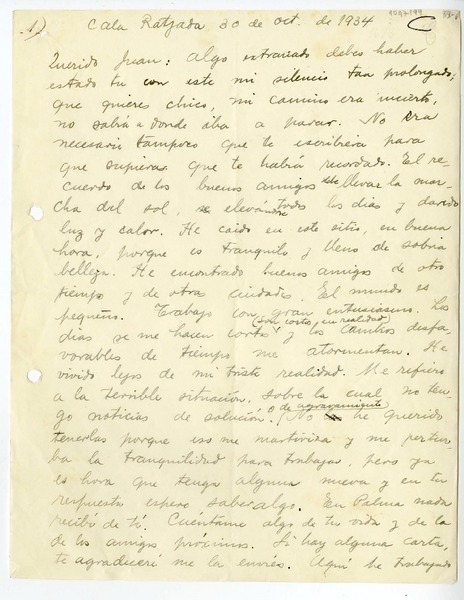 1) Cala Ratjada 30 de Oct. de 1934 C
Querido Juan: Algo extrañado debes haber
estado tu con este mi silencio tan prolongado;
que quieres chico, mi camino era incierto,
no sabía a donde iba a parar. No era
necesario tampoco que te escribiera para
que supieras que te habrá recordado. El re-
cuerdo de los buenos amigos lleva la mar-
cha del sol, elevandose todos los días y dando
luz y calor. He caido en este sitio, en buena
hora, porque es tranquilo y lleno de sobria
belleza. He encontrado buenos amigos de otro
tiempo y de otras ciudades. El mundo es
pequeño. Trabajo con gran entusiasmo. Los
días se me hacen cortos (son cortos en realidad) y los cambios desfa-
vorables de tiempo me atormentan. He
vivido lejos de mi triste realidad. Me refiero
a la terrible situacion, sobre la cual no ten-
go noticias de solución o de agravamiento. No he querido
tenerlas porque eso me martiriza y me pertur-
ba la tranquilidad para trabajar, pero ya
es hora que tenga alguna nueva y en tu
respuesta espero saber algo. En Palma nada
recibí de tí. Cuéntame algo de tu vida y de la
de los amigos próximos. Si hay alguna carta,
te agradeceré me la envíes. Aquí he trabajado